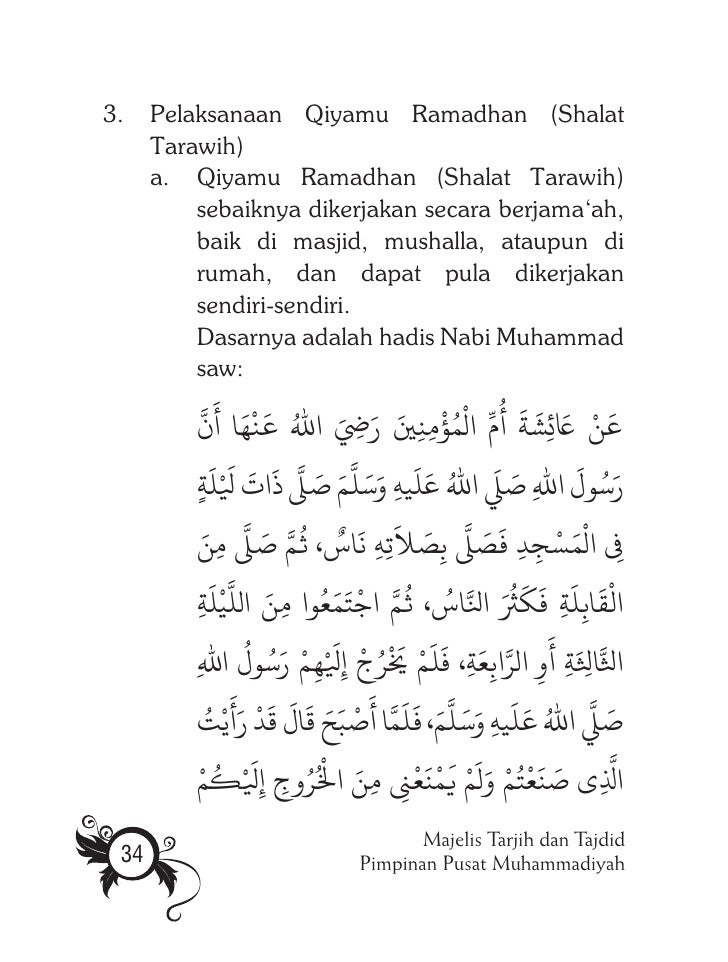 3. Pelaksanaan Qiyamu Ramadhan (Shalat
Tarawih)
a. Qiyamu Ramadhan (Shalat Tarawih)
sebaiknya dikerjakan secara berjama‘ah,
baik di masjid, mushalla, ataupun di
rumah, dan dapat pula dikerjakan
sendiri-sendiri.
Dasarnya adalah hadis Nabi Muhammad
saw:
عَنْ عَائِشَةَ أُمِّ الْمُؤْمِنِينَ رَضِيَ اللهُ عَنْهَا أَنَّ
رَسُولَ اللهِ صَلَّي اللهُ عَلَيهِ وَسَلَّمَ صَلَّى ذَاتَ لَيْلَةٍ
فِى الْمَسْجِدِ فَصَلَّى بِصَلاَتِهِ نَاسٌ، ثُمَّ صَلَّى مِنَ
الْقَابِلَةِ فَكَثُرَ النَّاسُ، ثُمَّ اجْتَمَعُوا مِنَ اللَّيْلَةِ
الثَّالِثَةِ أَوِ الرَّابِعَةِ، فَلَمْ يَخْرُجْ إِلَيْهِمْ رَسُولُ اللهِ
صَلَّي اللهُ عَلَيهِ وَسَلَّمَ، فَلَمَّا أَصْبَحَ قَالَ قَدْ رَأَيْتُ
الَّذِى صَنَعْتُمْ وَلَمْ يَمْنَعْنِى مِنَ الْخُرُوجِ إِلَيْكُمْ
Majelis Tarjih dan Tajdid
34
Pimpinan Pusat Muhammadiyah